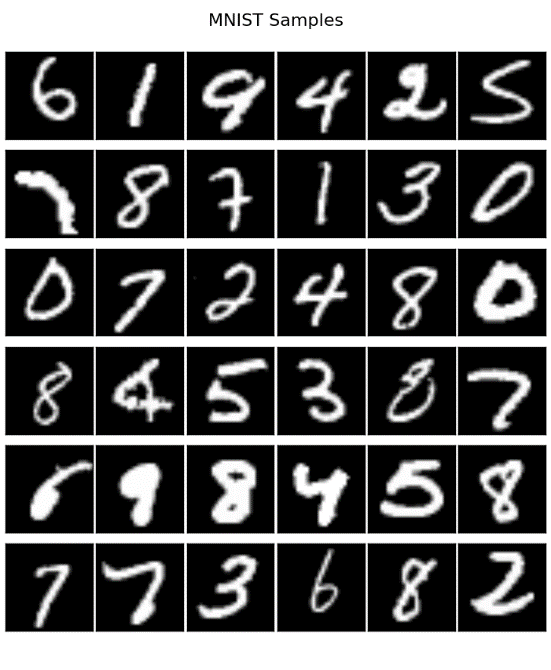 MNIST Samples
6 1 9 4 2 5
7 8 7 1 3 0
0 7 2 4 8 0
8 4 5 3 8 7
6 9 8 4 5 8
7 7 3 6 8 2